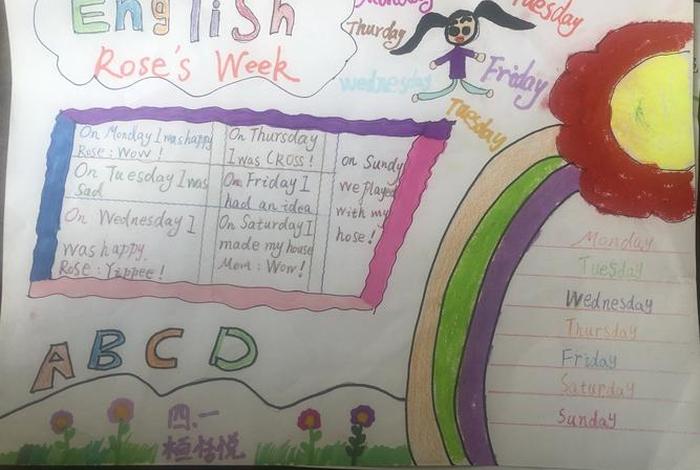 English
Rose's Week
Monday
Tuesday
Thurday
wednesday
Friday
Tuesday
On Monday I was happy
Rose: Wow!
On Tuesday I was
Sad
On Wednesday I
was happy.
Rose: Yippee!
On Thursday
I was CROSS!
On Friday I
had an idea
On Saturday I
made my house
Mom: Wow!
on Sundy
we played
with my
hose!
Monday
Tuesday
Wednesday
Thursday
Friday
Saturday
Sunday
ABCD
四.一
桓恬悦